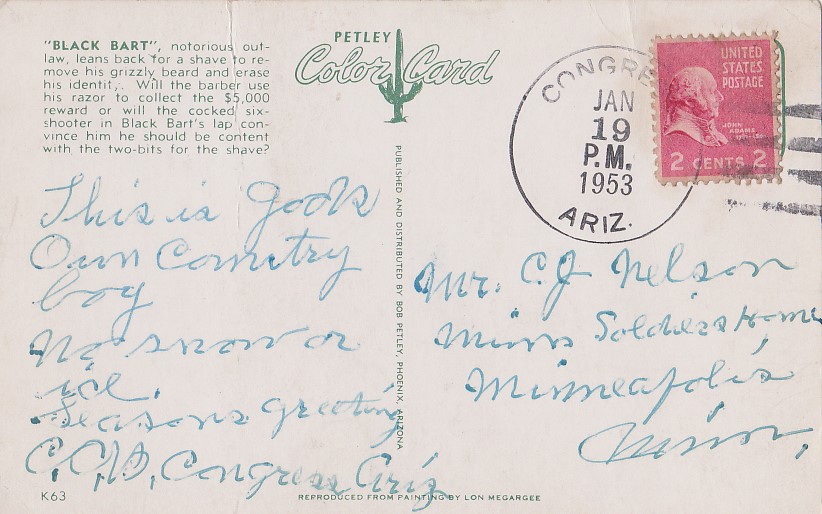 "BLACK BART", notorious out-
law, leans back for a shave to re-
move his grizzly beard and erase
his identity. Will the barber use
his razor to collect the $5,000
reward or will the cocked six-
shooter in Black Bart's lap con-
vince him he should be content
with the two-bits for the shave?
PETLEY
Color Card
CONGRE
JAN
19
P.M.
1953
ARIZ.
UNITED
STATES
POSTAGE
JOHN
ADAMS
2 CENTS 2
This is Gods
Own Country
boy
No snow or
ice.
Seasons greeting
Congress Ariz
PUBLISHED AND DISTRIBUTED BY BOB PETLEY, PHOENIX, ARIZONA
Mr. C.J. Nelson
Minn Soldiers Home
Minneapolis
Minn,
K63
REPRODUCED FROM PAINTING BY LON MEGARGEE